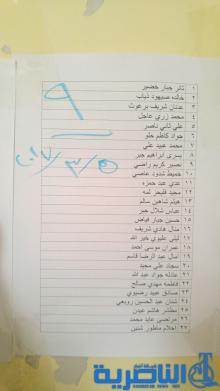 ٩
٢٠١٧/٣/٥
١ ثائر جبار خضير
٢ خالده صيهود ذياب
٣ عدنان شريف برغوث
٤ محمد زري عاجل
٥ علي ثاني ناصر
٦ جواد كاظم حلو
٧ محمد عبيد علي
٨ يسرى ابراهيم جبر
٩ نصير كريم راضي
١٠ حميد شدود عاصي
١١ عدي عبد حمزه
١٢ مجيد
١٣ هيثم شاهين سالم
١٤ عباس شلال جبر
١٥ حسين جبار فياض
١٦ منال هادي شريف
١٧ ليلى عليوي خير الله
١٨ عمران موسى احمد
١٩ امال عبد الرضا قاسم
٢٠ سجاد علي مجيد
٢١ عادله جواد عبد الله
٢٢ فاطمه مهدي صالح
٢٣ صادق عبيد
٢٤ عبد الحسين
٢٥ مظفر هاشم عيدن
٢٦ مرتضى عايد محمد
٢٧ احلام
الناصرية